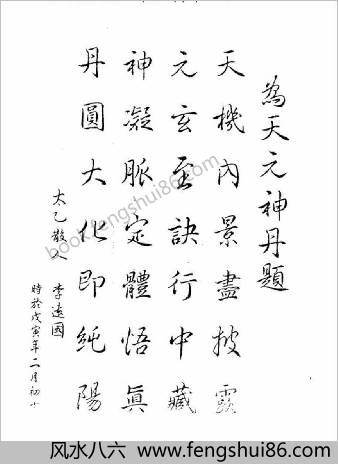 為天元神丹題
天機內景盡披露
元玄至訣行中藏
神凝脈定體悟真
丹圓大化即純陽
太乙散人 李遠國
時於戊寅年二月初十
book.fengshui86.com
风水八六－www.fengshui86.com